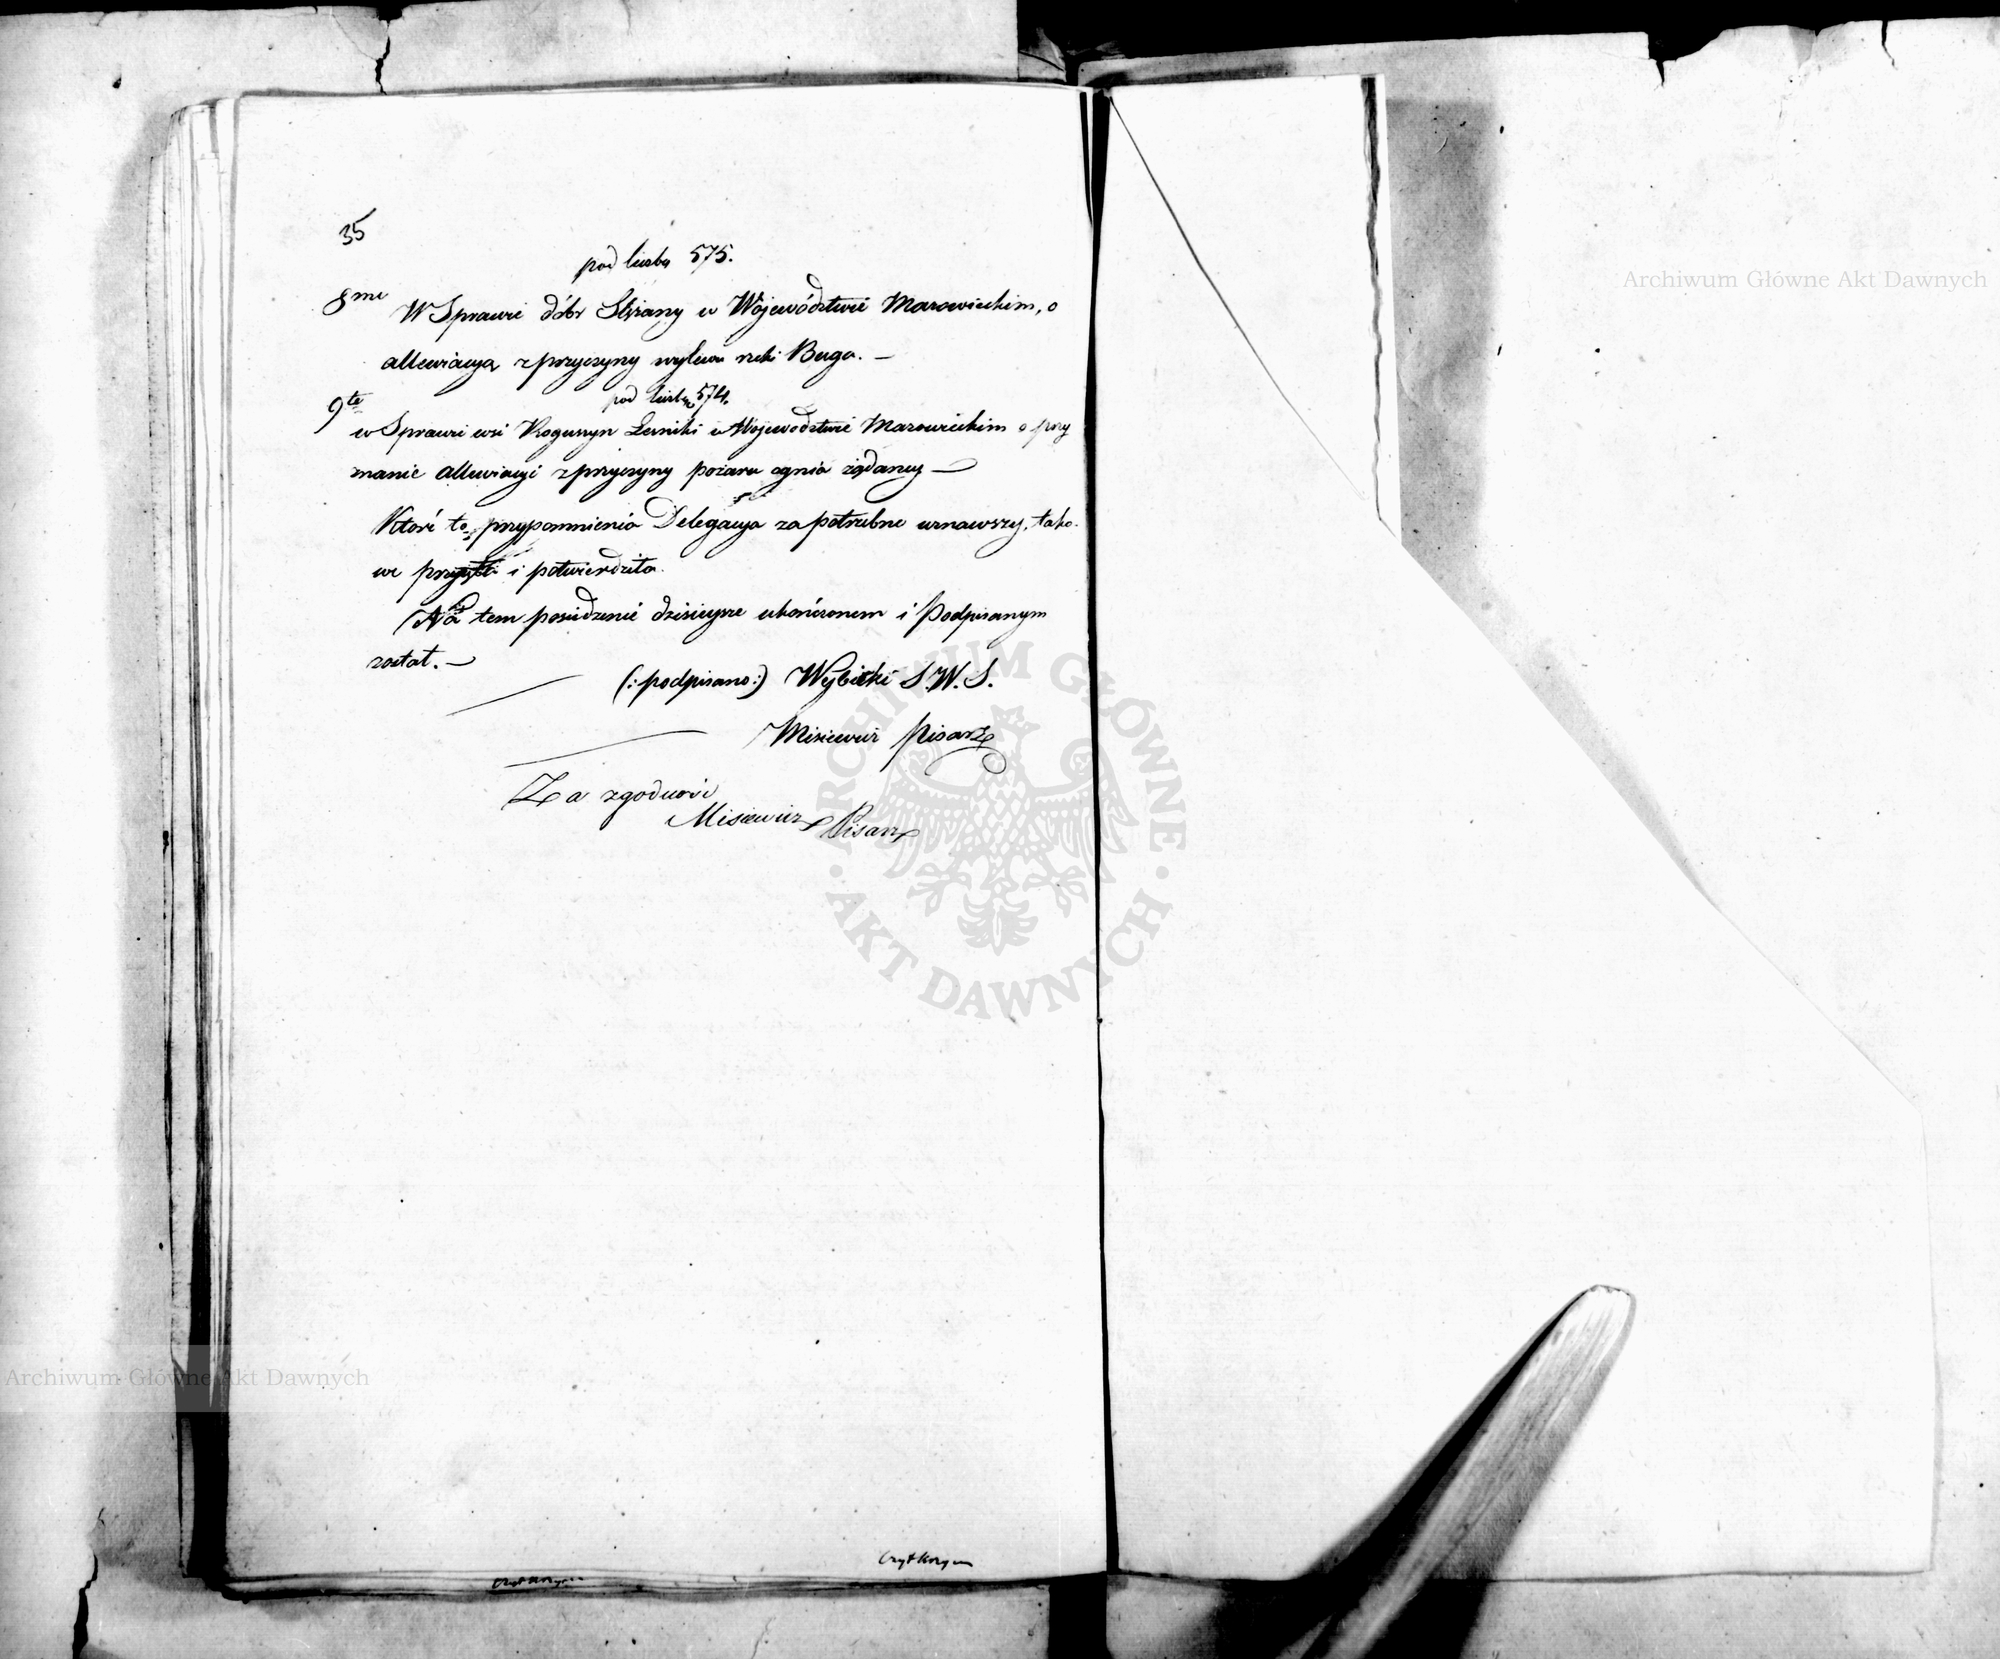 35
pod liczbą 575.
8me W Sprawie dóbr w Województwie Mazowieckim, o
allewiacyą z przyczyny wylewu rzeki Buga. —
pod liczbą 574.
9te w Sprawie wsi Roguszyn Leśniki w Województwie Mazowieckim o przy
znanie allewiacyi z przyczyny pożaru ognia żądaney —
Które to przypomnienia Delegacya za potrzebne uznawszy, tako-
we przyjęła i potwierdziła.
Na tem posiedzenie dzisieysze ukończonem i Podpisanym
został. —
(: podpisano :) Wybicki S.W.S.
Misiewicz Pisarz
Za zgodność
Misiewicz Pisarz
Archiwum Główne Akt Dawnych
ARCHIWUM GŁÓWNE
· AKT DAWNYCH ·
Archiwum Główne Akt Dawnych